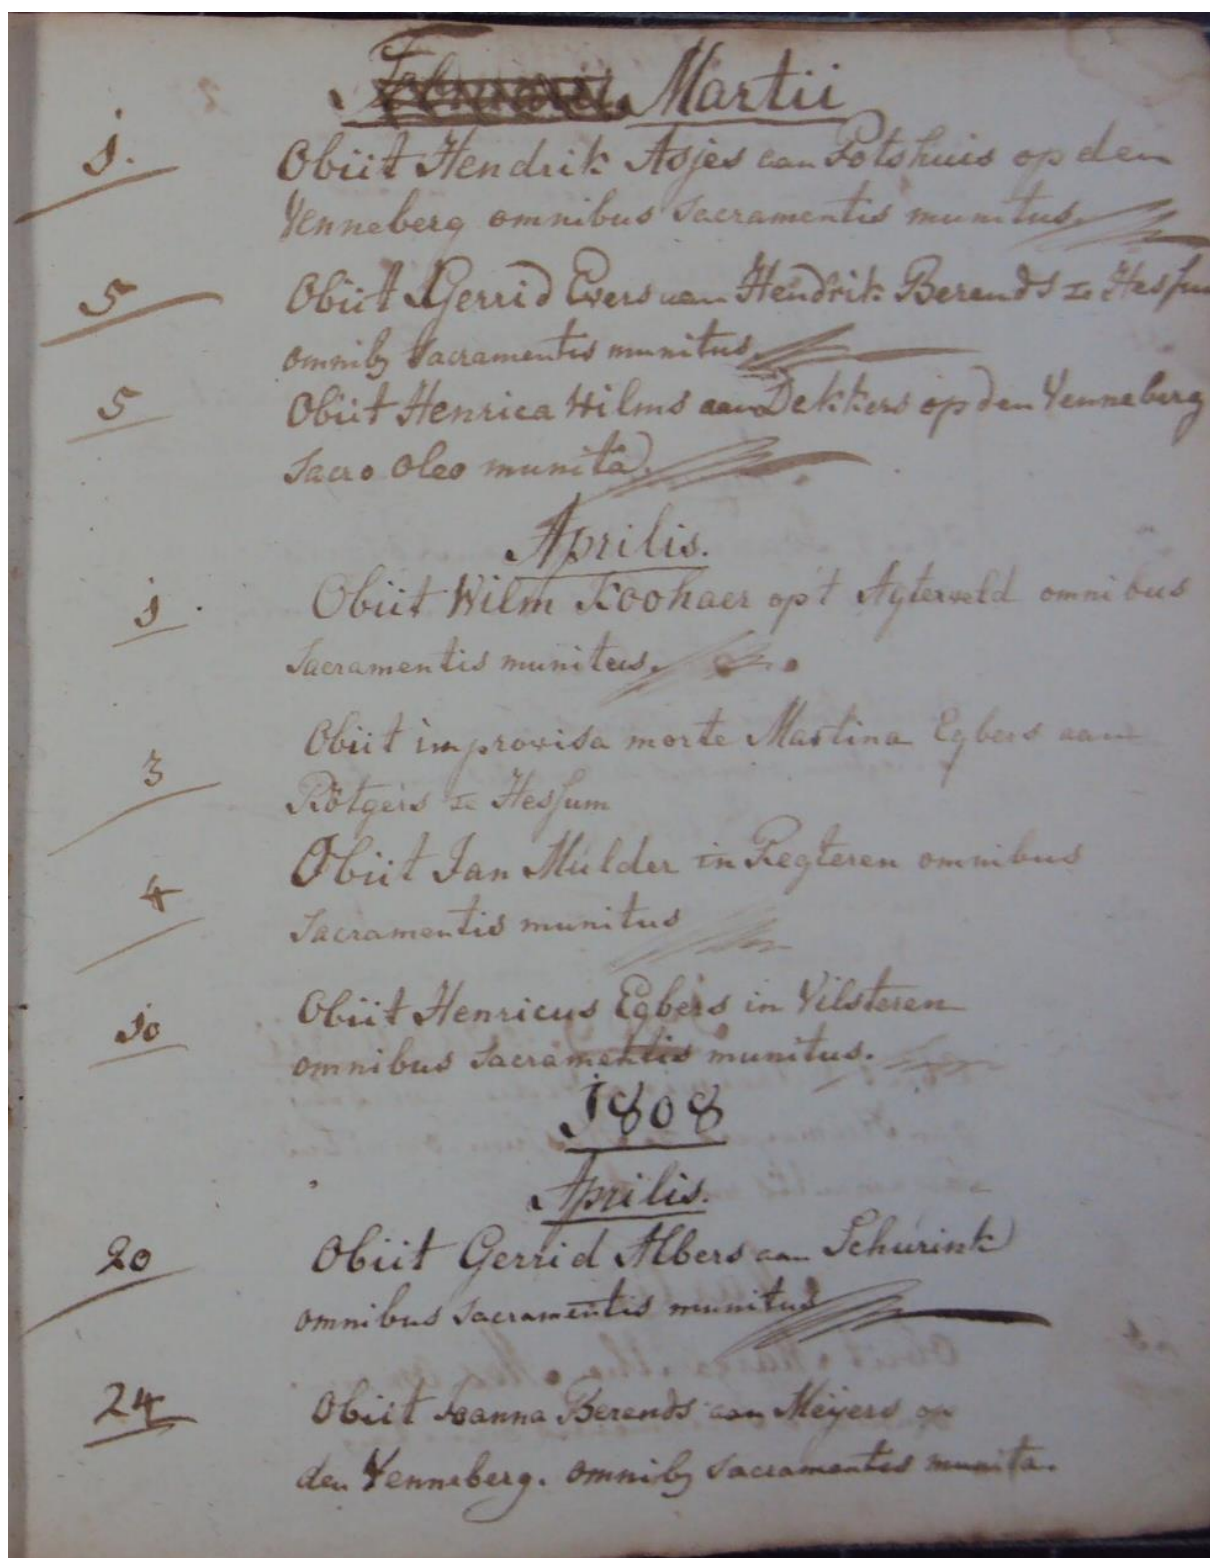 Februarii Martii
1. Obiit Hendrik Asjes aan Potshuis op den
Venneberg omnibus Sacramentis munitus
5 Obiit Gerrid Evers aan Hendrik Berends te Hessum
omnibq Sacramentis munitus
5 Obiit Henrica Wilms aan Dekkers op den Venneberg
Sacro Oleo munita.
Aprilis.
1. Obiit Wilm Koohaer op't Agterveld omnibus
Sacramentis munitus.
3 Obiit improvisa morte Martina Egbers aan
Rötgers te Hessum
4 Obiit Jan Mulder in Regteren omnibus
Sacramentis munitus
10 Obiit Henricus Egbers in Vilsteren
omnibus Sacramentis munitus.
1808
Aprilis.
20 Obiit Gerrid Albers aan Schurink
omnibus Sacramentis munitus
24 Obiit Joanna Berends aan Meijers op
den Venneberg. omnibq Sacramentis munita.